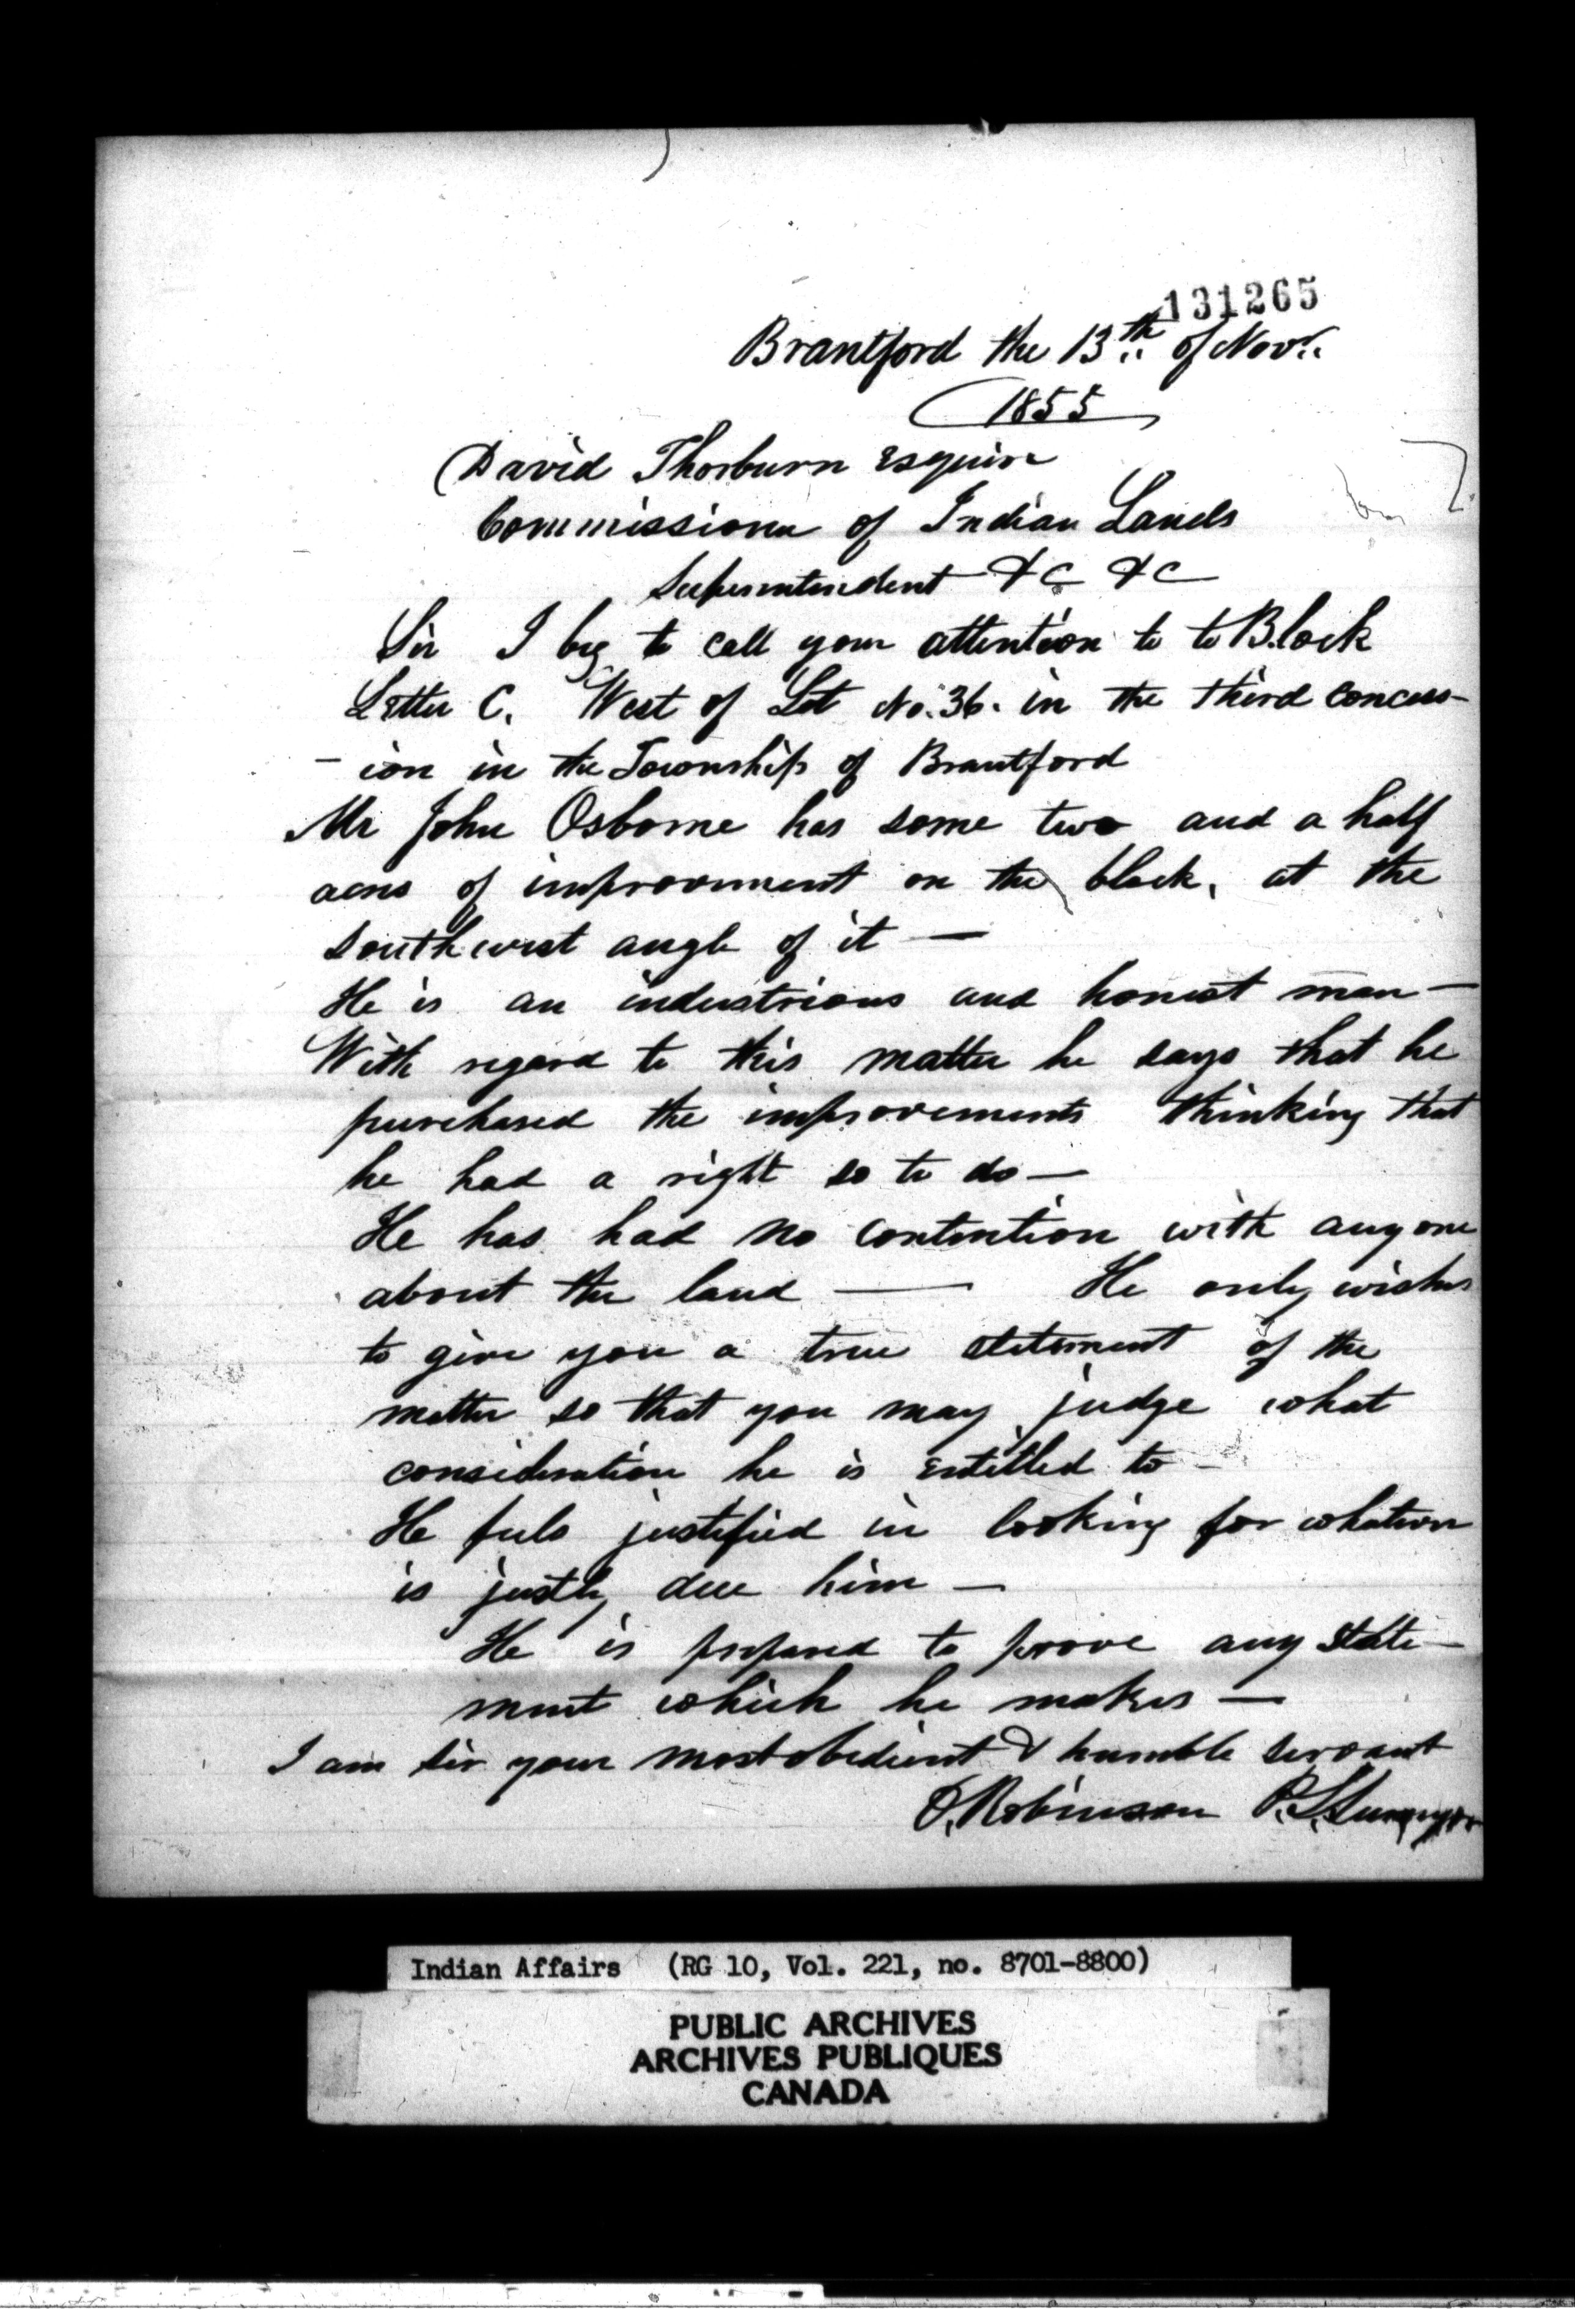 131265
Brantford the 13th of Novr.
1855
David Thorburn Esquire
Commissioner of Indian Lands
Superintendent &c &c
Sir I beg to call your attention to to Block
Letter C. West of Lot No. 36. in the third concess-
-ion in the Township of Brantford
Mr John Osborne has some two and a half
acres of improvement on the block, at the
southwest angle of it —
He is an industrious and honest man —
With regard to this matter he says that he
purchased the improvements thinking that
he had a right so to do —
He has had no contention with any one
about the land — He only wishes
to give you a true statement of the
matter so that you may judge what
consideration he is entitled to —
He feels justified in looking for whatever
is justly due him —
He is prepared to prove any state-
ment which he makes —
I am sir your most obedient & humble servant
Robinson P. L. Surveyor
Indian Affairs (RG 10, Vol. 221, no. 8701-8800)
PUBLIC ARCHIVES
ARCHIVES PUBLIQUES
CANADA